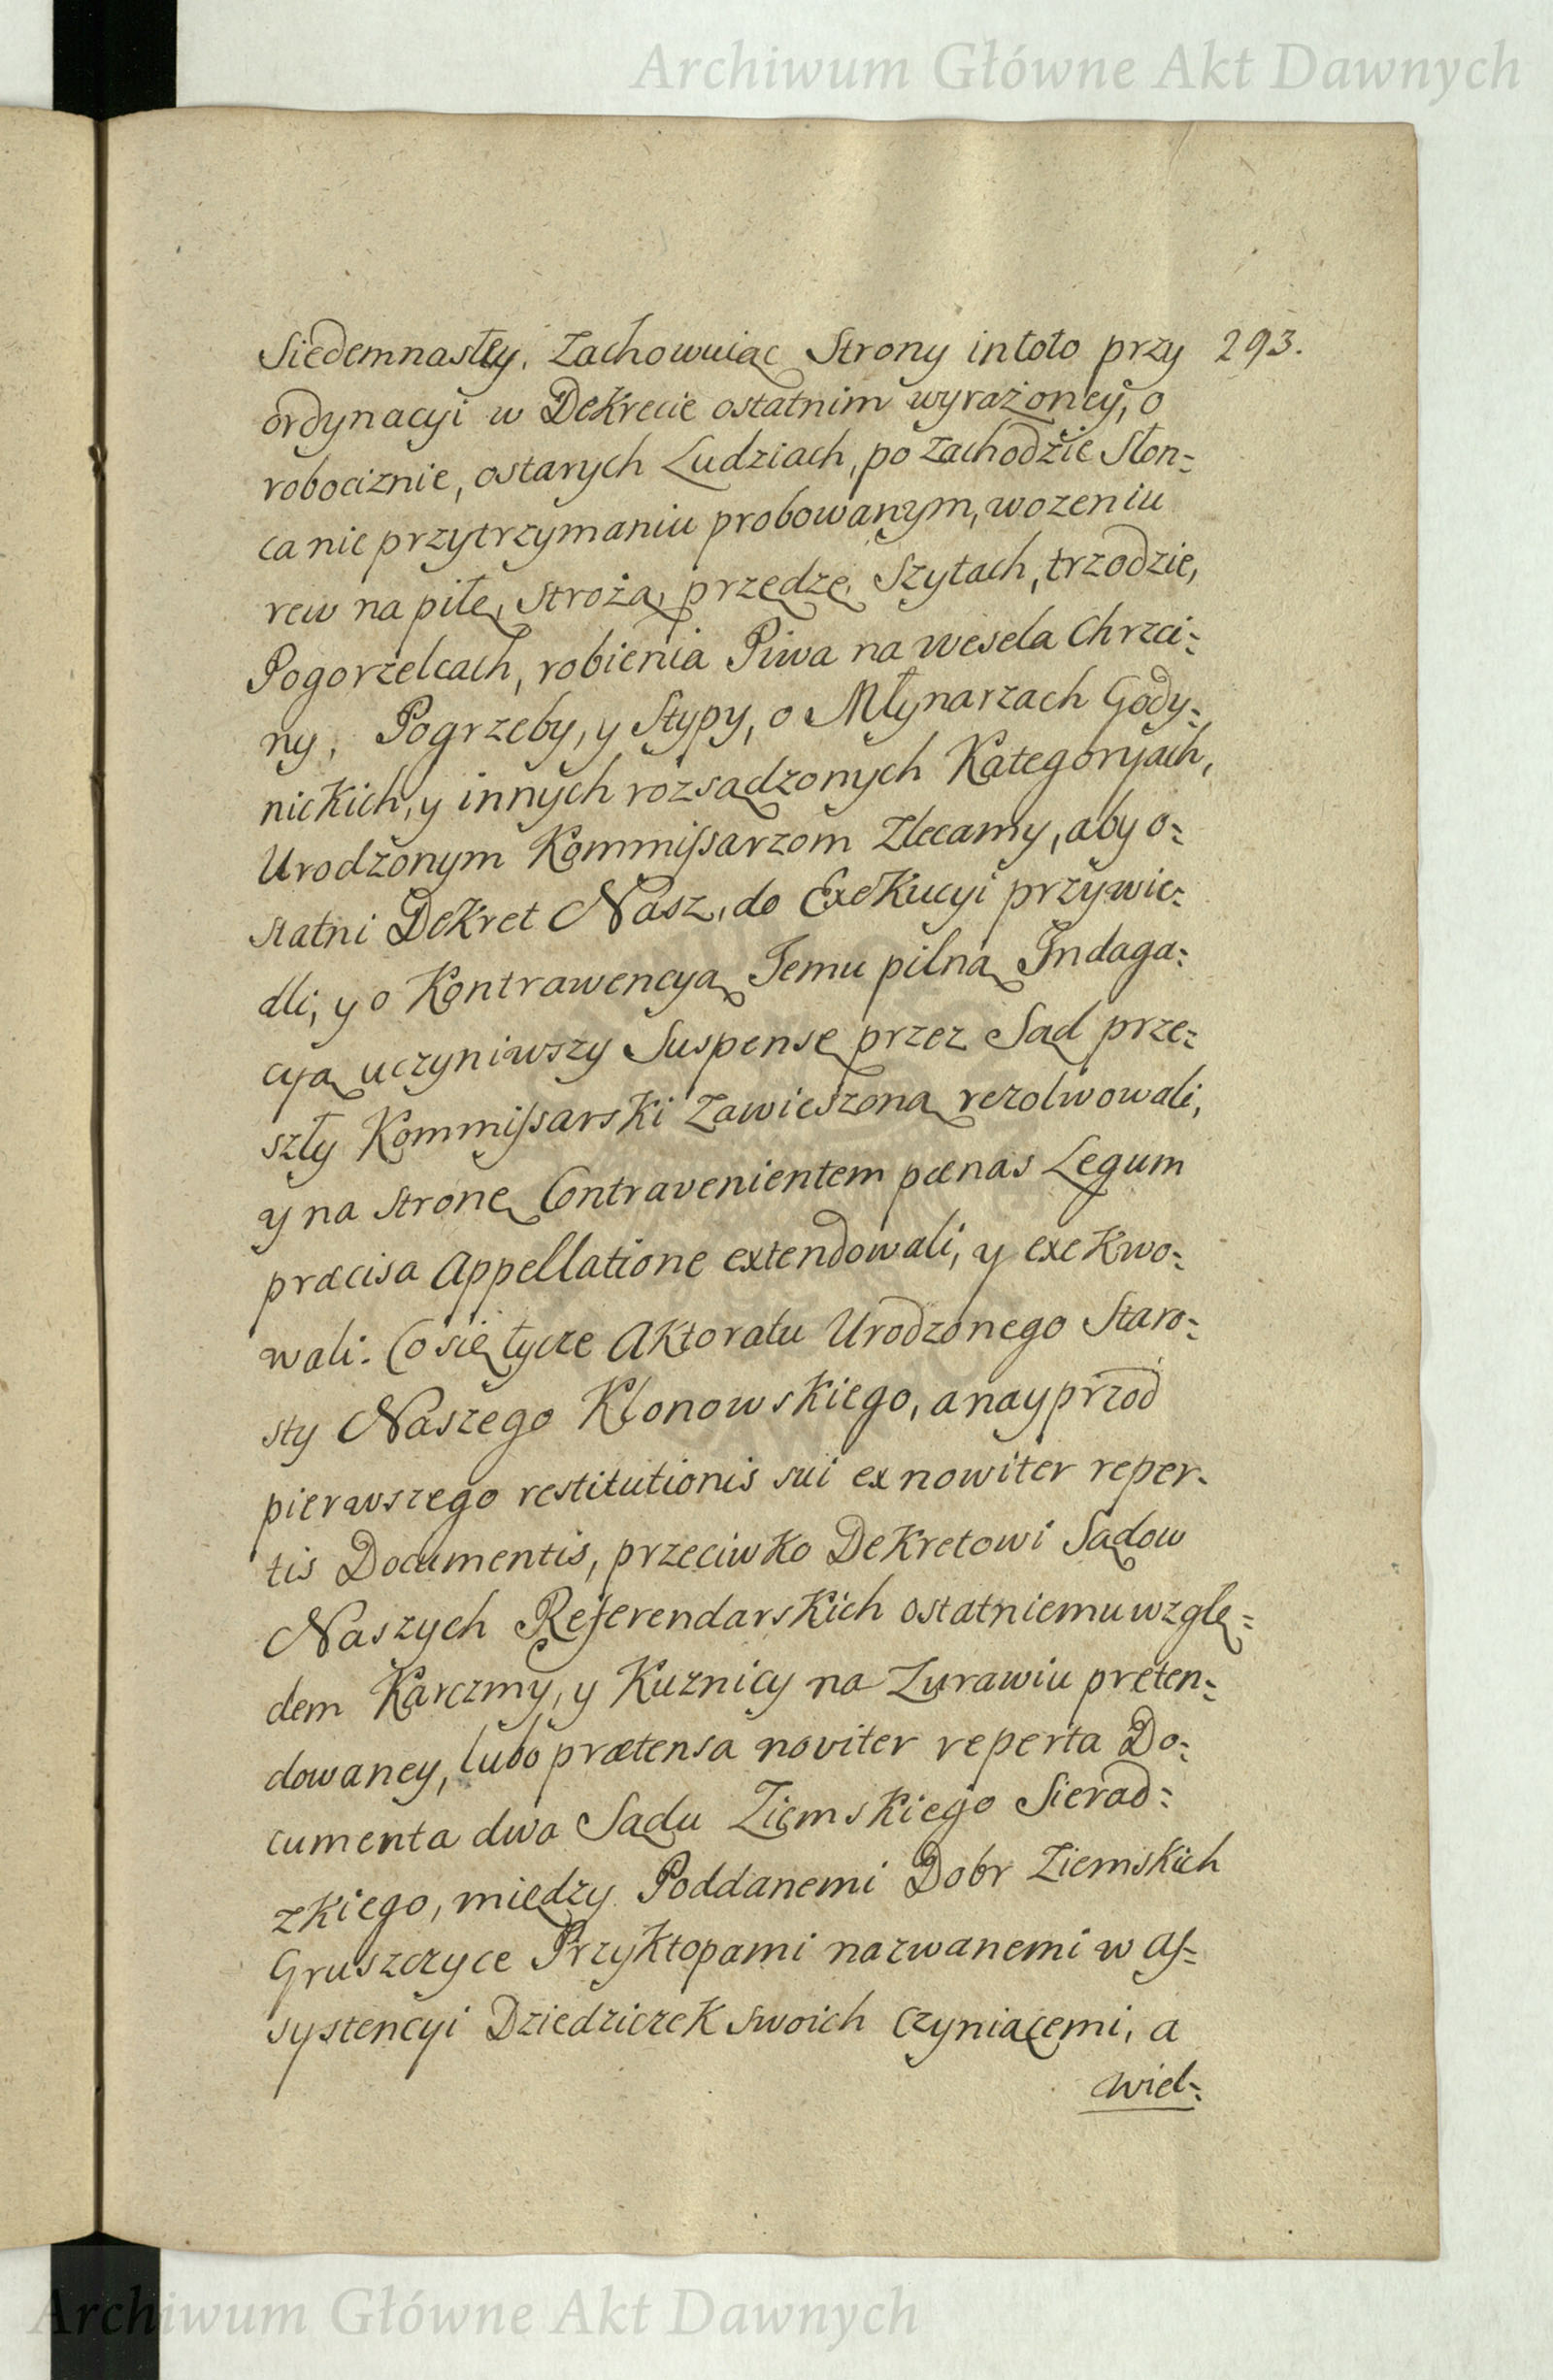 Archiwum Główne Akt Dawnych
Siedemnastey. Zachowuiąc Strony in toto przy 293.
ordynacyi w Dekrecie ostatnim wyrażoney, o
robociznie, o starych Ludziach, po zachodzie Słon=
ca nie przytrzymaniu probowanym, wozeniu
rew na piłę, strożą, przędzę, Szytach, trzodzie,
Pogorzelcach, robienia Piwa na wesela Chrzci=
ny, Pogrzeby, y Stypy, o Młynarzach Gody=
nickich, y innych rozsądzonych Kategoryach,
Urodzonym Kommissarzom Zlecamy, aby o=
statni Dekret Nasz, do Exekucyi przywie=
dli, y o Kontrawencyą Jemu pilną Indaga=
cyą uczyniwszy Suspensę przez Sąd prze=
szły Kommissarski zawieszoną rezolwowali,
y na stronę Contravenientem pænas Legum
præcisa Appellatione extendowali, y exekwo=
wali. Co się tycze Aktoratu Urodzonego Staro=
sty Naszego Klonowskiego, a nayprzod
pierwszego restitutionis sui ex nowiter reper=
tis Documentis, przeciwko Dekretowi Sądow
Naszych Referendarskich ostatniemu wzglę=
dem Karczmy, y Kuznicy na Zurawiu preten=
dowaney, lubo prætensa noviter reperta Do=
cumenta dwa Sądu Ziemskiego Sierad=
zkiego, między Poddanemi Dobr Ziemskich
Gruszczyce Przykłopami nazwanemi w as=
systencyi Dziedziczek swoich czyniącemi, a
wiel=
Archiwum Główne Akt Dawnych